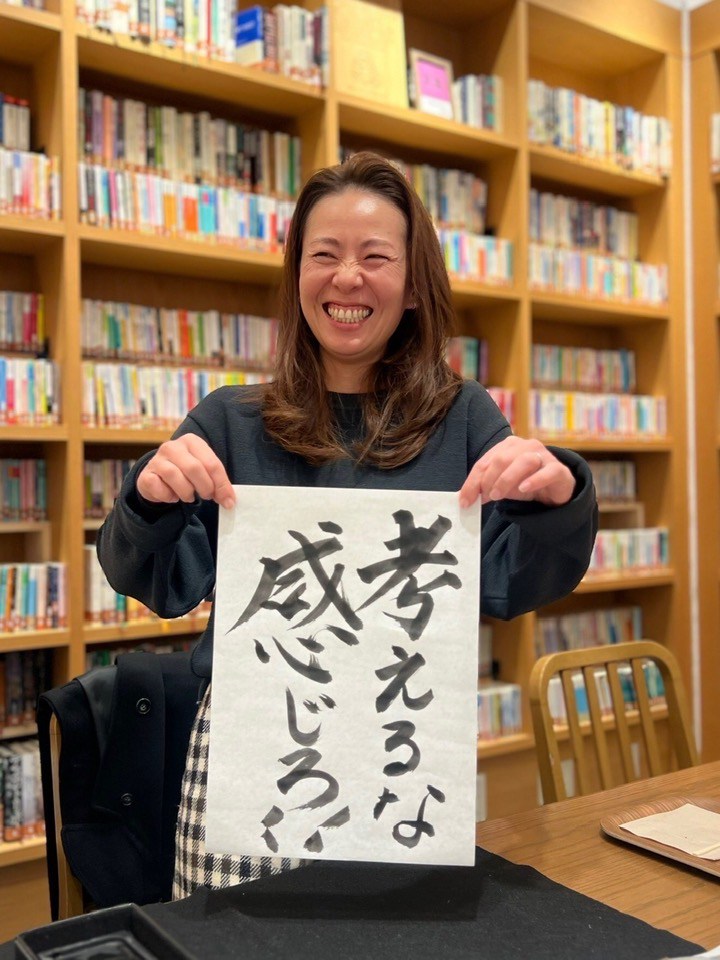 考えるな
感じろ!!